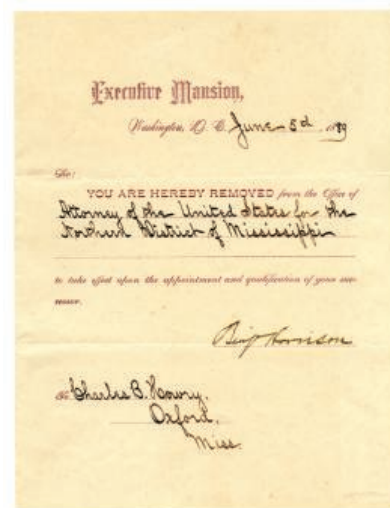 Executive Mansion,
Washington, D. C. June 5d 1889
Sir:
YOU ARE HEREBY REMOVED from the Office of
Attorney of the United States for the
Northern District of Mississippi
to take effect upon the appointment and qualification of your suc-
cessor.
Benj Harrison
To Charles B. Howry,
Oxford,
Miss.